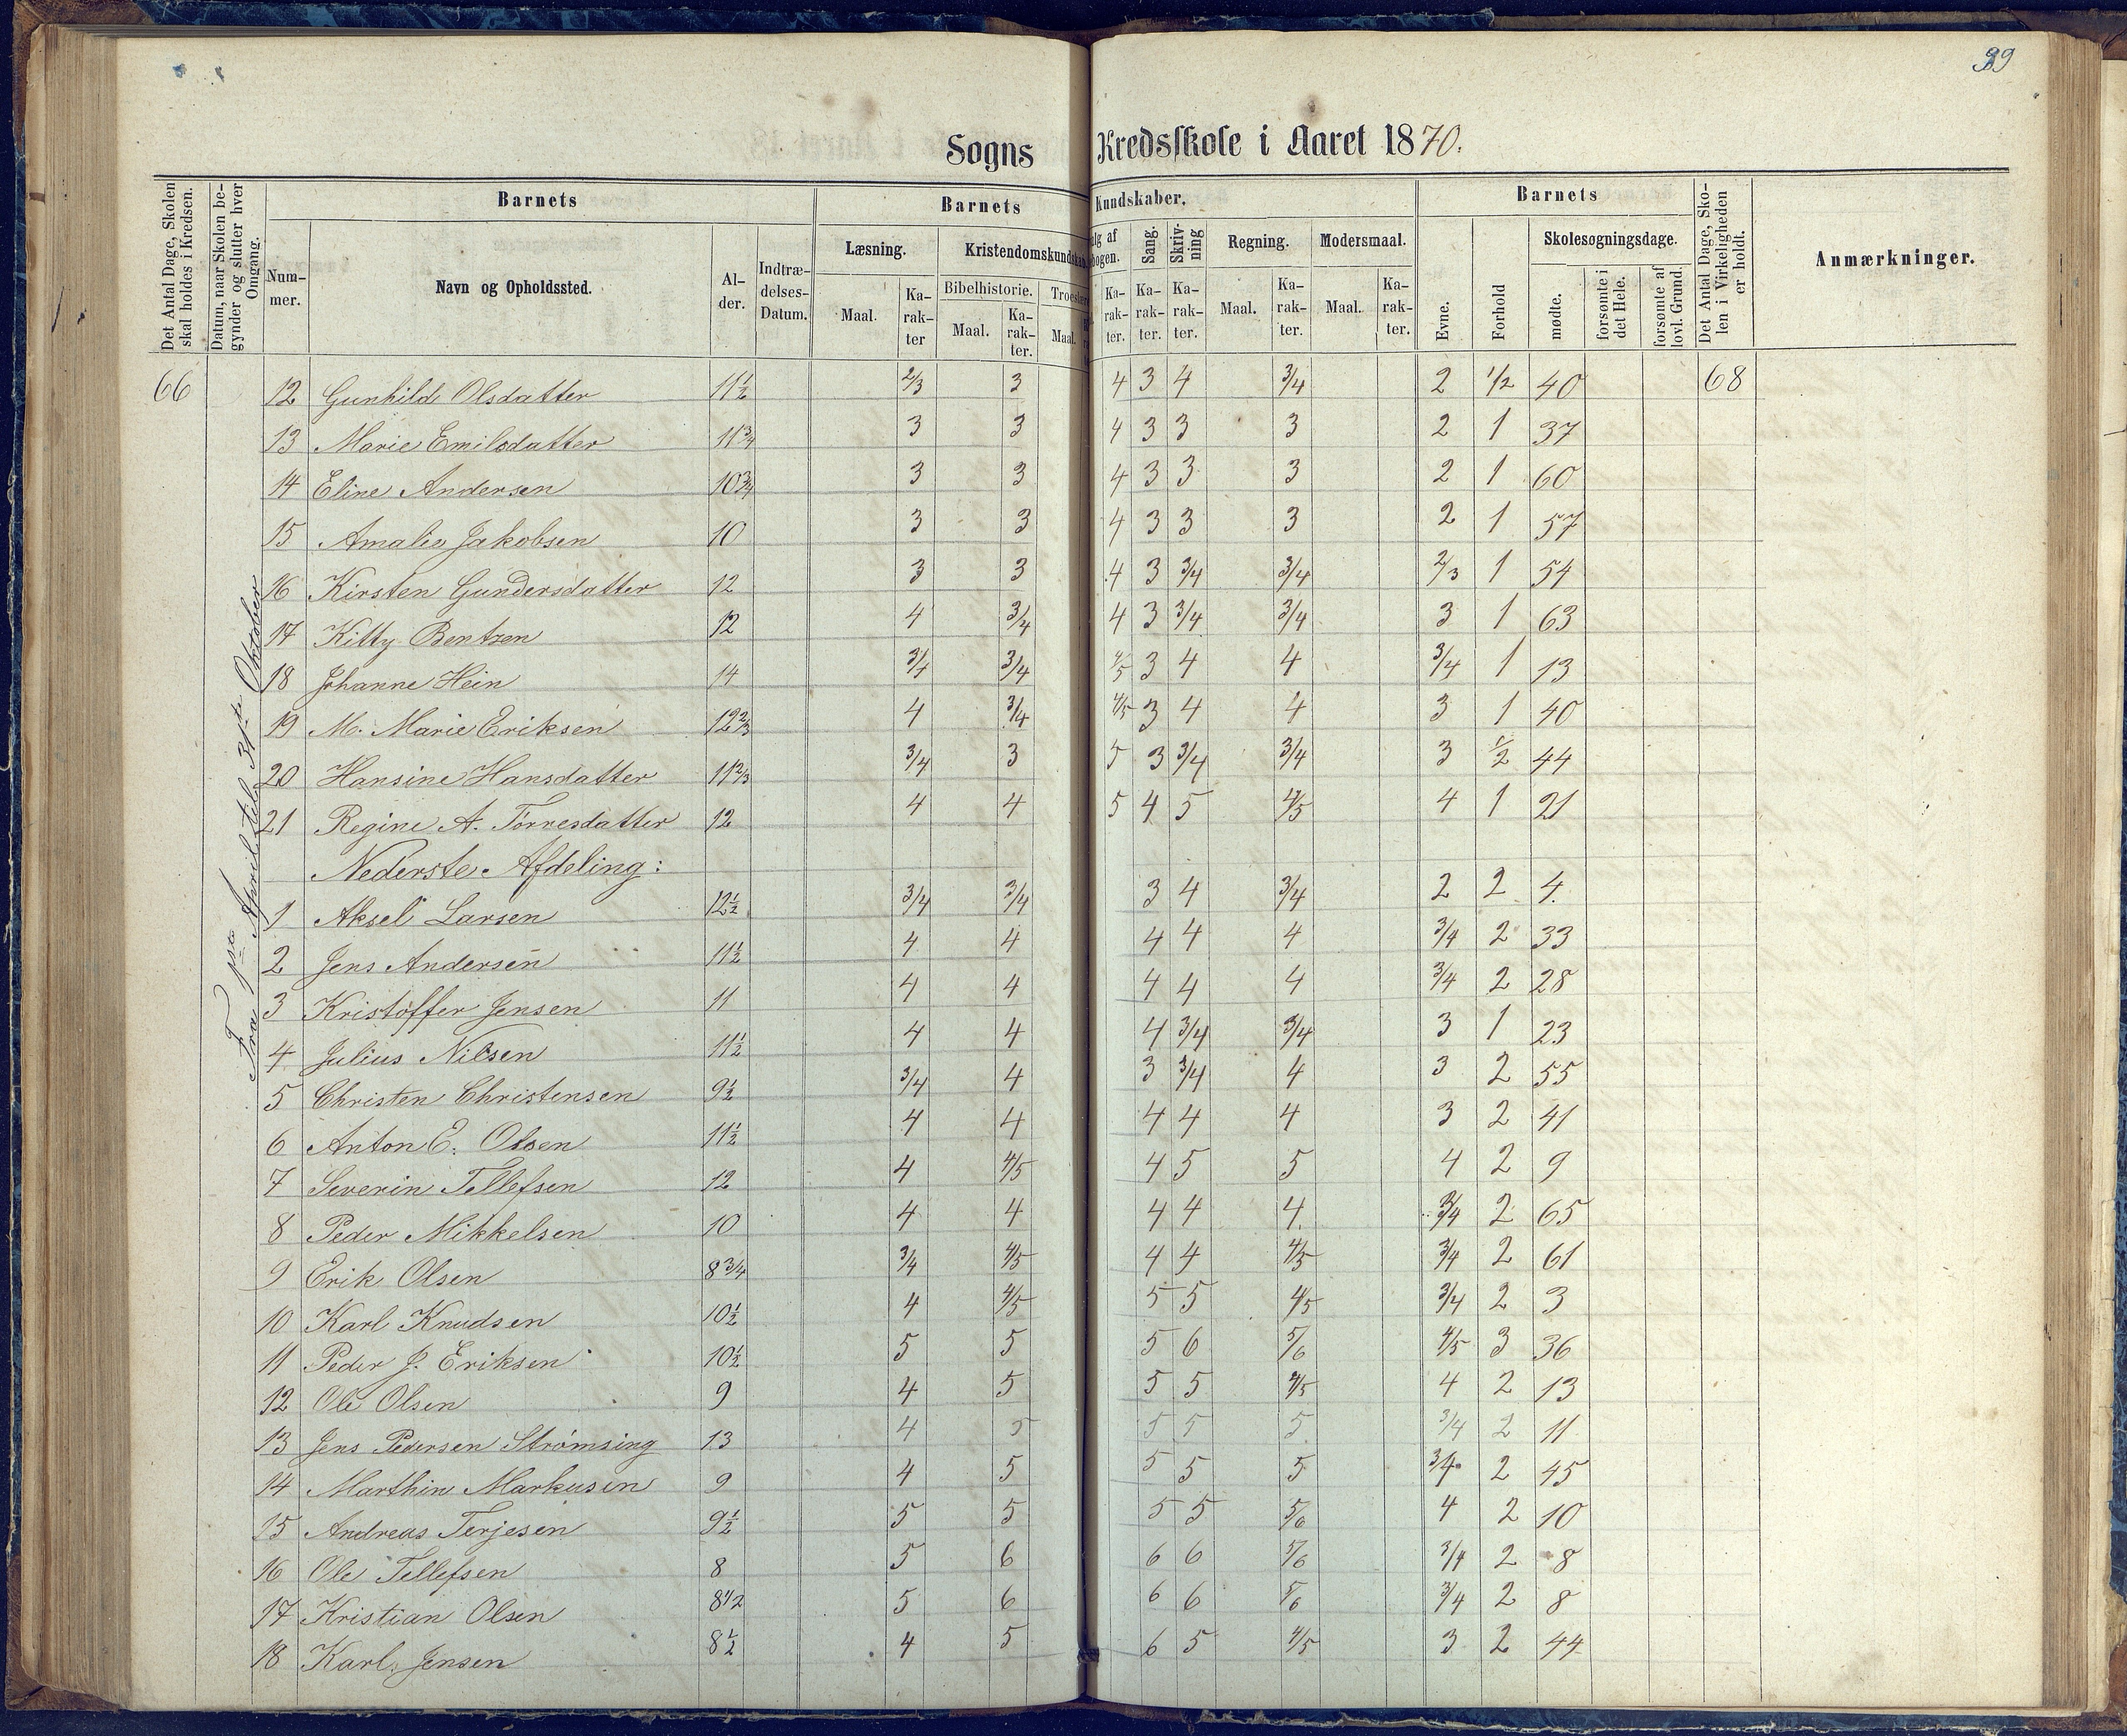 39
Sogns Kredsskole i Aaret 1870.
Det Antal Dage, Skolen skal holdes i Kredsen.
Datum, naar Skolen begynder og slutter hver Omgang.
Barnets
Barnets Kundskaber.
Barnets
Det Antal Dage, Skolen i Virkeligheden er holdt.
Anmærkninger.
Nummer.
Navn og Opholdssted.
Alder.
Indtrædelses-Datum.
Læsning.
Kristendomskundskab
Sang.
Skrivning
Regning.
Modersmaal.
Evne.
Forhold
Skolesøgningsdage.
Bibelhistorie.
Maal.
Karakter
Maal.
Karakter.
Maal.
Karakter.
Karakter.
Karakter.
Maal.
Karakter.
Maal.
Karakter.
mødte.
forsømte i det Hele.
forsømte af lovl. Grund.
Fra 1ste April til 31te Oktober
66 12 Gunhild Olsdatter 11½ 2/3 3 4 3 4 3/4 2 1/2 40 68
13 Marie Emilsdatter 11¾ 3 3 4 3 3 3 2 1 37
14 Eline Andersen 10¾ 3 3 4 3 3 3 2 1 60
15 Amalie Jakobsen 10 3 3 4 3 3 3 2 1 57
16 Kirsten Gundersdatter 12 3 3 4 3 3/4 3/4 2/3 1 54
17 Kitty Bentzen 12 4 3/4 4 3 3/4 3/4 3 1 63
18 Johanne Hein 14 3/4 3/4 4/5 3 4 4 3/4 1 13
19 M. Marie Eriksen 12⅔ 4 3/4 4/5 3 4 4 3 1 40
20 Hansine Hansdatter 11⅔ 3/4 3 5 3 3/4 3/4 3 1/2 44
21 Regine A. Tørresdatter 12 4 4 5 4 5 4/5 4 1 21
Nederste Afdeling:
1 Aksel Larsen 12½ 3/4 3/4 3 4 3/4 2 2 4.
2 Jens Andersen 11½ 4 4 4 4 4 3/4 2 33
3 Kristoffer Jensen 11 4 4 4 4 4 3/4 2 28
4 Julius Nilsen 11½ 4 4 4 3/4 3/4 3 1 23
5 Christen Christensen 9½ 3/4 4 3 3/4 4 3 2 55
6 Anton E. Olsen 11½ 4 4 4 4 4 3 2 41
7 Severin Tellefsen 12 4 4/5 4 5 5 4 2 9
8 Peder Mikkelsen 10 4 4 4 4 4. 3/4 2 65
9 Erik Olsen 8¾ 3/4 4/5 4 4 4/5 3/4 2 61
10 Karl Knudsen 10½ 4 4/5 5 5 4/5 3/4 2 3
11 Peder J. Eriksen 10½ 5 5 5 6 5/6 4/5 3 36
12 Ole Olsen 9 4 5 5 5 4/5 4 2 13
13 Jens Pedersen Strømsing 13 4 5 5 5 5. 3/4 2 11
14 Marthin Markusen 9 4 5 5 5 5 3/4 2 45
15 Andreas Terjesen 9½ 5 5 5 5 5/6 4 2 10
16 Ole Tellefsen 8 5 6 6 6 5/6 3/4 2 8
17 Kristian Olsen 8½ 5 6 6 6 5/6 3/4 2 8
18 Karl Jensen 8½ 4 5 6 5 4/5 3 2 44